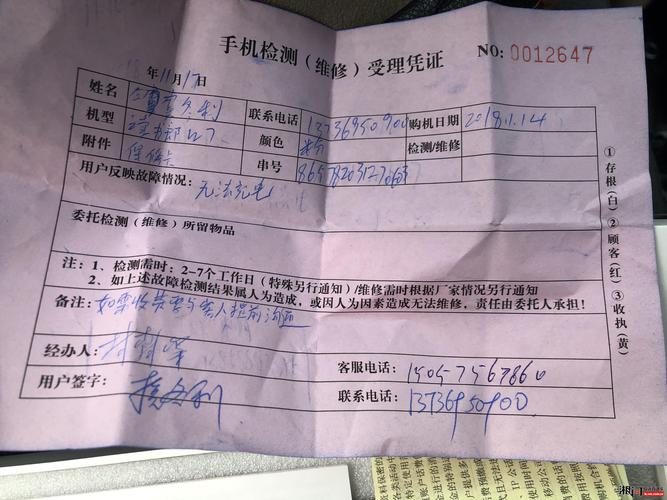 手机检测（维修）受理凭证 NO: 0012647
年11月17日
姓名 联系电话 13736950900 购机日期 2018.1.14
机型 颜色 粉 检测/维修
附件 保修卡 串号
用户反映故障情况： 无法充电
委托检测（维修）所留物品
注：1、检测需时：2-7个工作日（特殊另行通知）/维修需时根据厂家情况另行通知
2、如上述故障检测结果属人为造成，或因人为因素造成无法维修，责任由委托人承担！
备注： 如需收费需与客人提前沟通
经办人： 客服电话： 15057567860
用户签字： 联系电话： 13736950900
①存根（白）②顾客（红）③收执（黄）